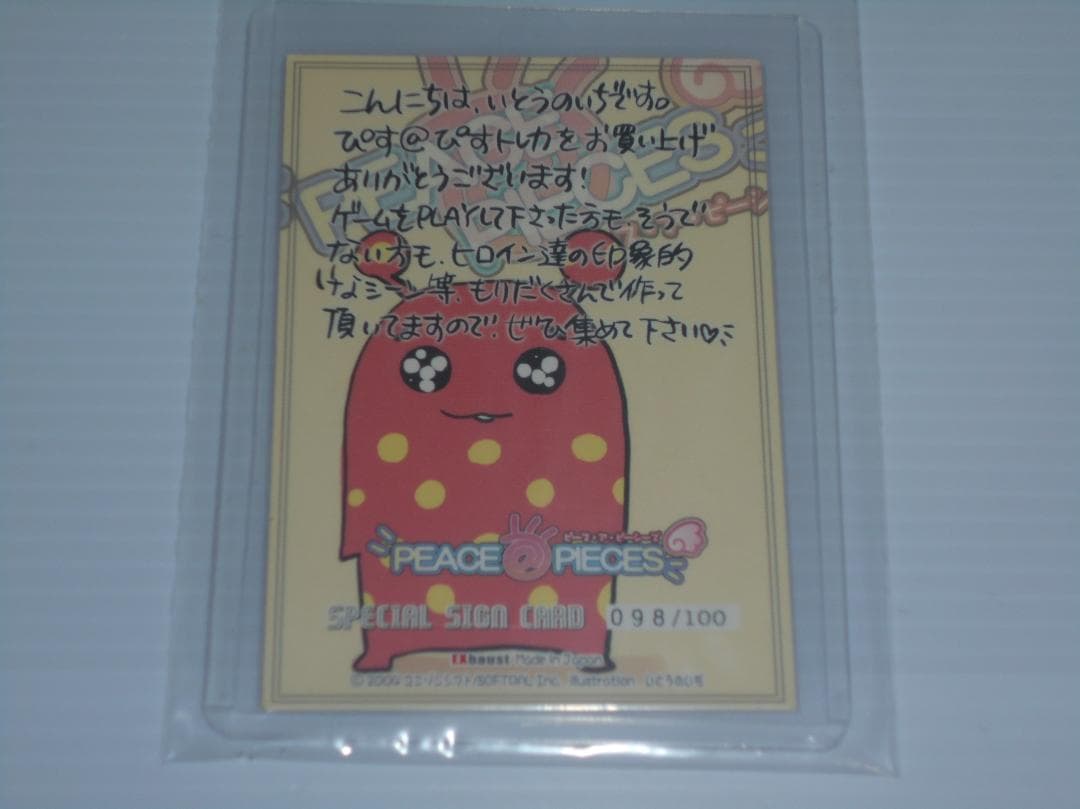 こんにちは、いとうのいぢです。
ぴす@ぴすトレカをお買い上げ
ありがとうございます!
ゲームをPLAYして下さった方も、そうで
ない方も、ヒロイン達の印象的
なシーン等、もりだくさんで作って
頂いてますので、ぜひ集めて下さい♡
ピース・ア・ピーシーズ
PEACE@PIECES
SPECIAL SIGN CARD 098/100
EXhaust Made in Japan
© 2004 ユニゾンシフト/SOFTPAL Inc. Illustration いとうのいぢ